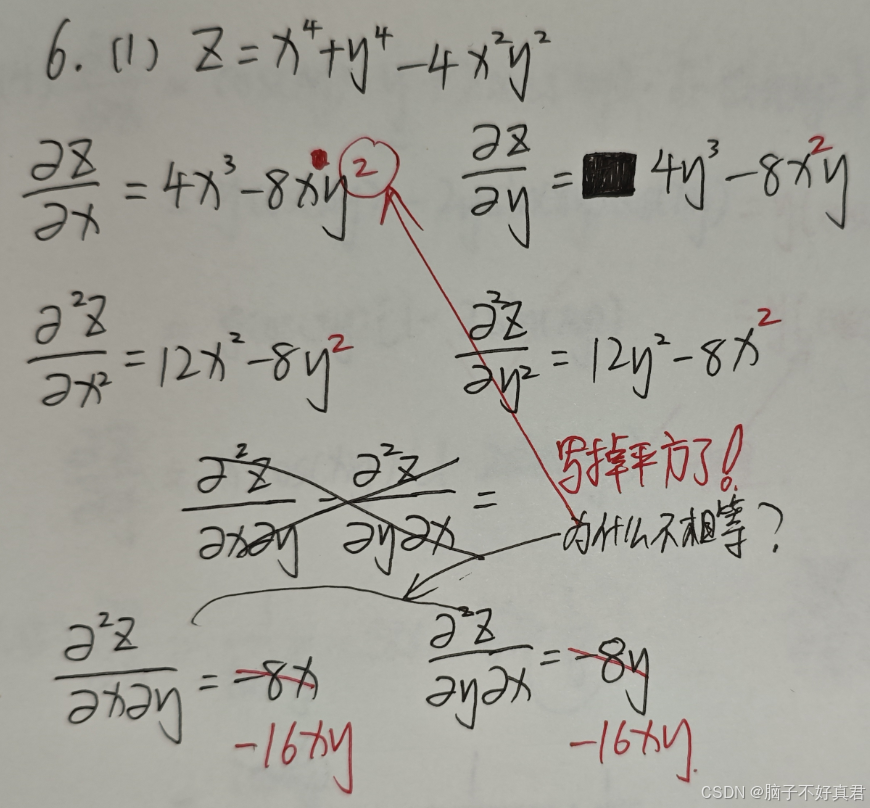 6. (1) Z = x⁴+y⁴-4x²y²
∂Z/∂x = 4x³-8xy² ∂Z/∂y = 4y³-8x²y
∂²Z/∂x² = 12x²-8y² ∂²Z/∂y² = 12y²-8x²
写掉平方了!
∂²Z/∂x∂y - ∂²Z/∂y∂x =
为什么不相等?
∂²Z/∂x∂y = -8x ∂²Z/∂y∂x = -8y
-16xy -16xy.
CSDN @脑子不好真君